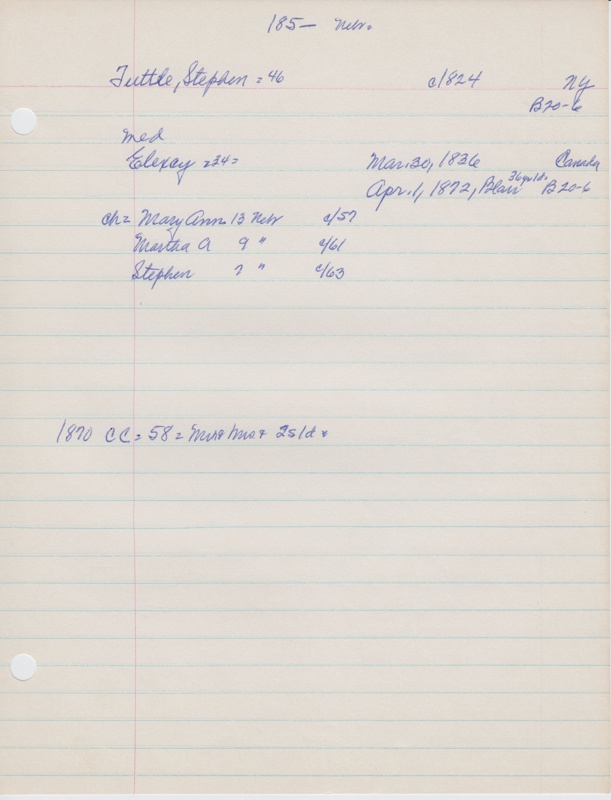 185— Nebr.
Tuttle, Stephen = 46 c/1824 NY
B20-6
med
Elexcy =34= Mar. 30, 1836 Canada
Apr. 1, 1872, Blair 36 yr old. B20-6
ch = Mary Ann 13 Nebr c/57
Martha A 9 " c/61
Stephen 7 " c/63
1870 CC = 58 = Mr & Mrs & 2s/d &